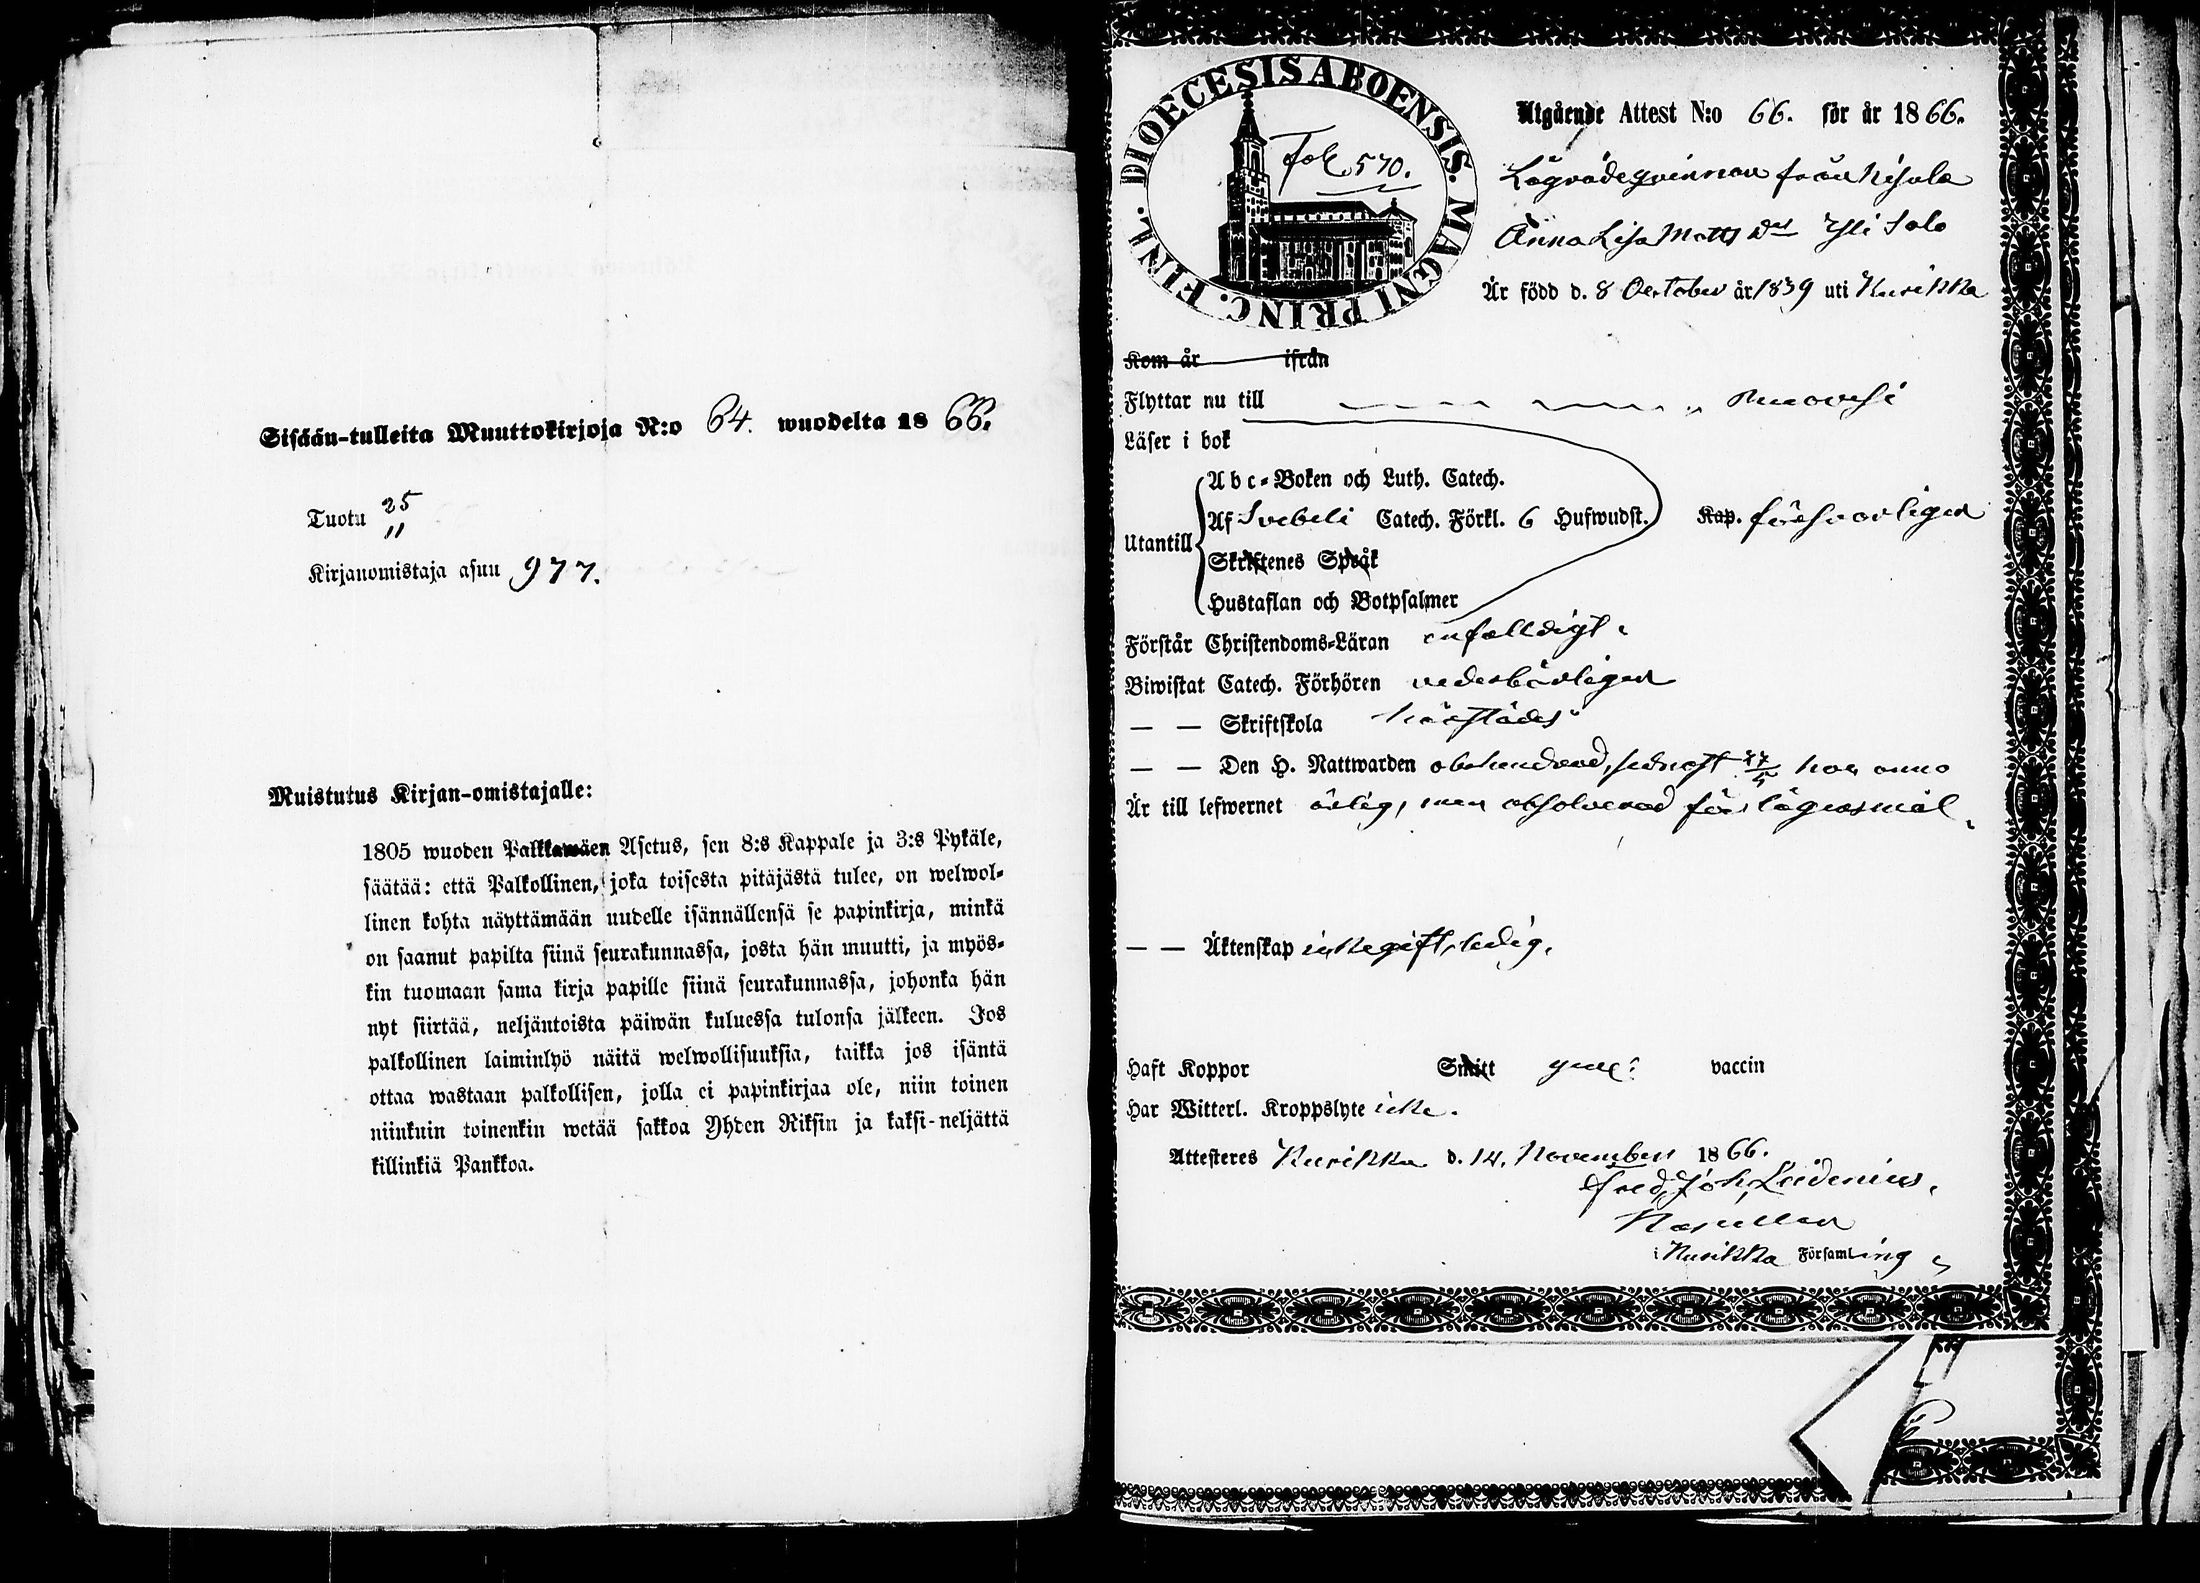 Sisään-tulleita Muuttokirjoja N:o 64. wuodelta 1866.
Tuotu 25/11
Kirjanomistaja asuu 977.
Muistutus Kirjan-omistajalle:
1805 wuoden Palkkawäen Asetus, sen 8:s Kappale ja 3:s Pykäle,
säätää: että Palkollinen, joka toisesta pitäjästä tulee, on welwol-
linen kohta näyttämään uudelle isännällensä se papinkirja, minkä
on saanut papilta siinä seurakunnassa, josta hän muutti, ja myös-
kin tuomaan sama kirja papille siinä seurakunnassa, johonka hän
nyt siirtää, neljäntoista päiwän kuluessa tulonsa jälkeen. Jos
palkollinen laiminlyö näitä welwollisuuksia, taikka jos isäntä
ottaa wastaan palkollisen, jolla ei papinkirjaa ole, niin toinen
niinkuin toinenkin wetää sakkoa Yhden Riksin ja kaksi-neljättä
killinkiä Pankkoa.
DIOECESIS ABOENSIS. MAGNI PRINC. FINL.
Fol. 570.
Utgående Attest N:o 66. för år 1866.
Lägradeqvinnan från
Anna Lisa Matts Dr Yli Salo
Är född d. 8 October år 1839 uti Kurikka
Kom år ifrån
Flyttar nu till Ruovesi
Läser i bok
Utantill
Abc-Boken och Luth. Catech.
Af Svebeli Catech. Förkl. 6 Hufwudst. Kap. försvarligen
Skriftenes Språk
Hustaflan och Botpsalmer
Förstår Christendoms-Läran enfalldigt.
Biwistat Catech. Förhören vederbörligen
— — Skriftskola härstädes
— — Den H. Nattwarden obehindrad, sednast 27/5 hoc anno
Är till lefwernet ärlig, men absolverad för lägersmål.
— — Äktenskap icke gift, ledig.
Haft Koppor Smitt genom vaccin
Har Witterl. Kroppslyte icke.
Attesteres Kurikka d. 14. November 1866.
Fred. Joh. Leidenius.
Kapellan
i Kurikka Församling